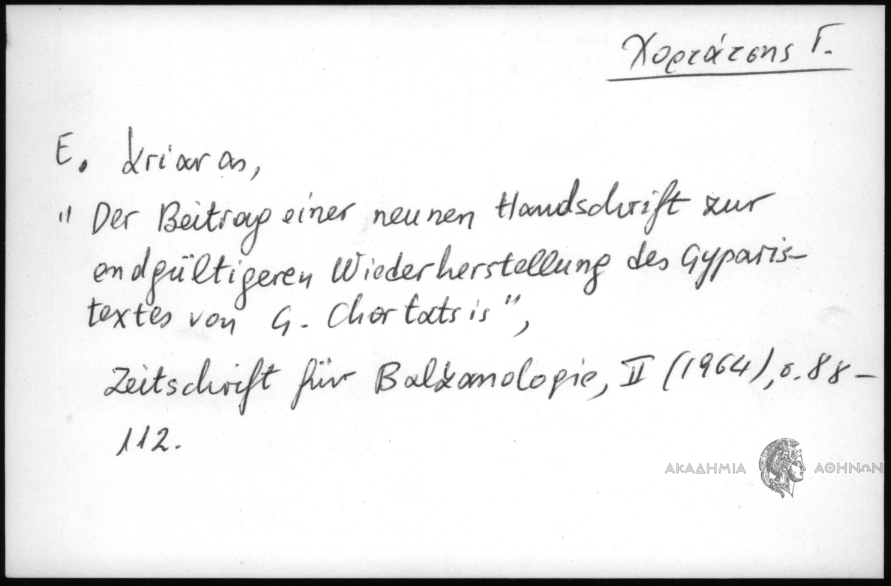 Χορτάτσης Γ.
E. Kriaras,
" Der Beitrag einer neunen Handschrift zur
endgültigeren Wiederherstellung des Gyparis-
textes von G. Chortatsis",
Zeitschrift für Balkanologie, II (1964), σ. 88-
112.
ΑΚΑΔΗΜΙΑ ΑΘΗΝΩΝ